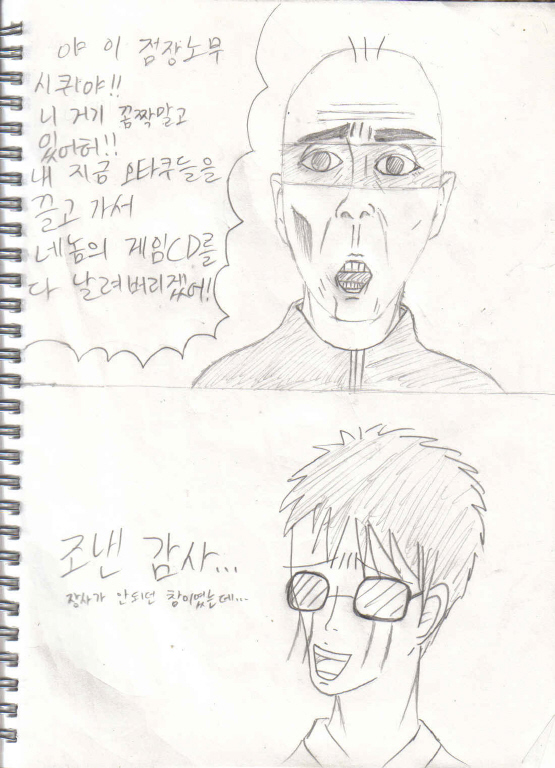 야 이 점장노무
시퀴야!!
니 거기 꼼짝말고
있어허!!
내 지금 오타쿠들을
끌고 가서
네놈의 게임CD를
다 날려버리겠어!
조낸 감사...
장사가 안되던 참이였는데...